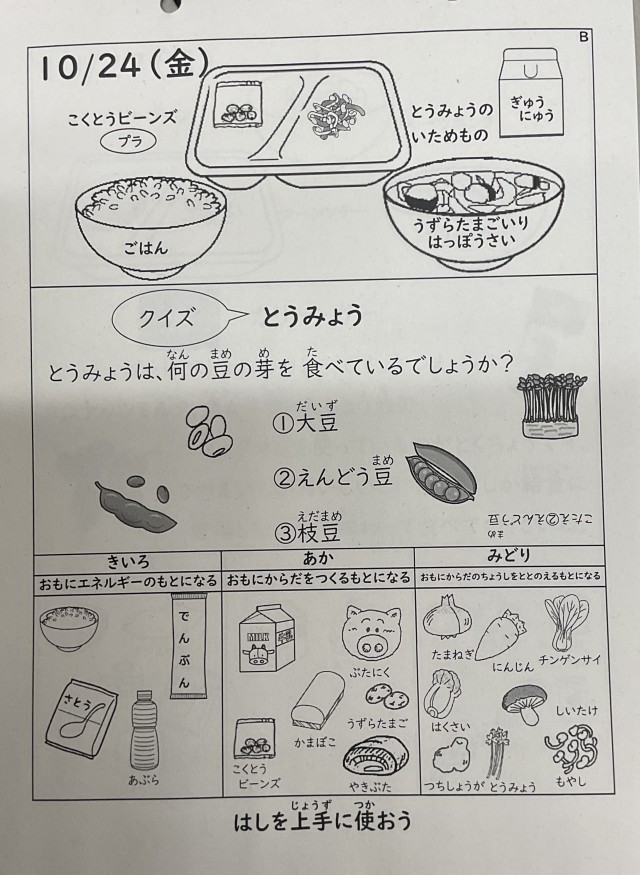 B
10/24(金)
こくとうビーンズ
プラ
とうみょうの
いためもの
ぎゅう
にゅう
ごはん
うずらたまごいり
はっぽうさい
クイズ
とうみょう
なん まめ め た
とうみょうは、何の豆の芽を 食べているでしょうか?
だいず
①大豆
まめ
②えんどう豆
えだまめ
③枝豆
まめ
こたえ②えんどう豆
きいろ
おもにエネルギーのもとになる
でんぷん
さとう
あぶら
あか
おもにからだをつくるもとになる
MILK
ぶたにく
かまぼこ
うずらたまご
こくとう
ビーンズ
やきぶた
みどり
おもにからだのちょうしをととのえるもとになる
たまねぎ
にんじん
チンゲンサイ
はくさい
しいたけ
つちしょうが
とうみょう
もやし
じょうず つか
はしを上手に使おう